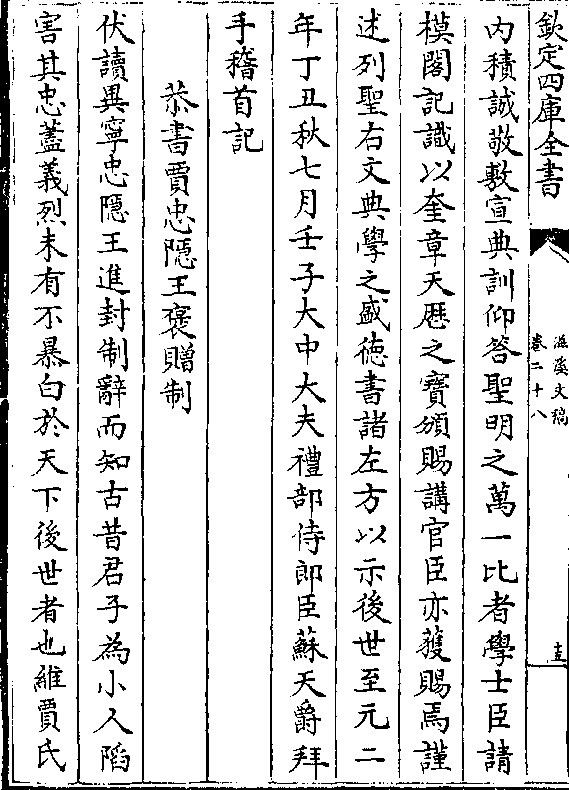 欽定四庫全書
滋溪文稿
卷二十八
十五
内積誠敬敷宣典訓仰答聖明之萬一比者學士臣請
模閣記識以奎章天厯之寶頒賜講官臣亦獲賜焉謹
述列聖右文典學之盛德書諸左方以示後世至元二
年丁丑秋七月壬子大中大夫禮部侍郎臣蘇天爵拜
手稽首記
恭書賈忠隱王褒贈制
伏讀異寧忠隱王進封制辭而知古昔君子為小人陷
害其忠蓋義烈未有不暴白於天下後世者也維賈氏